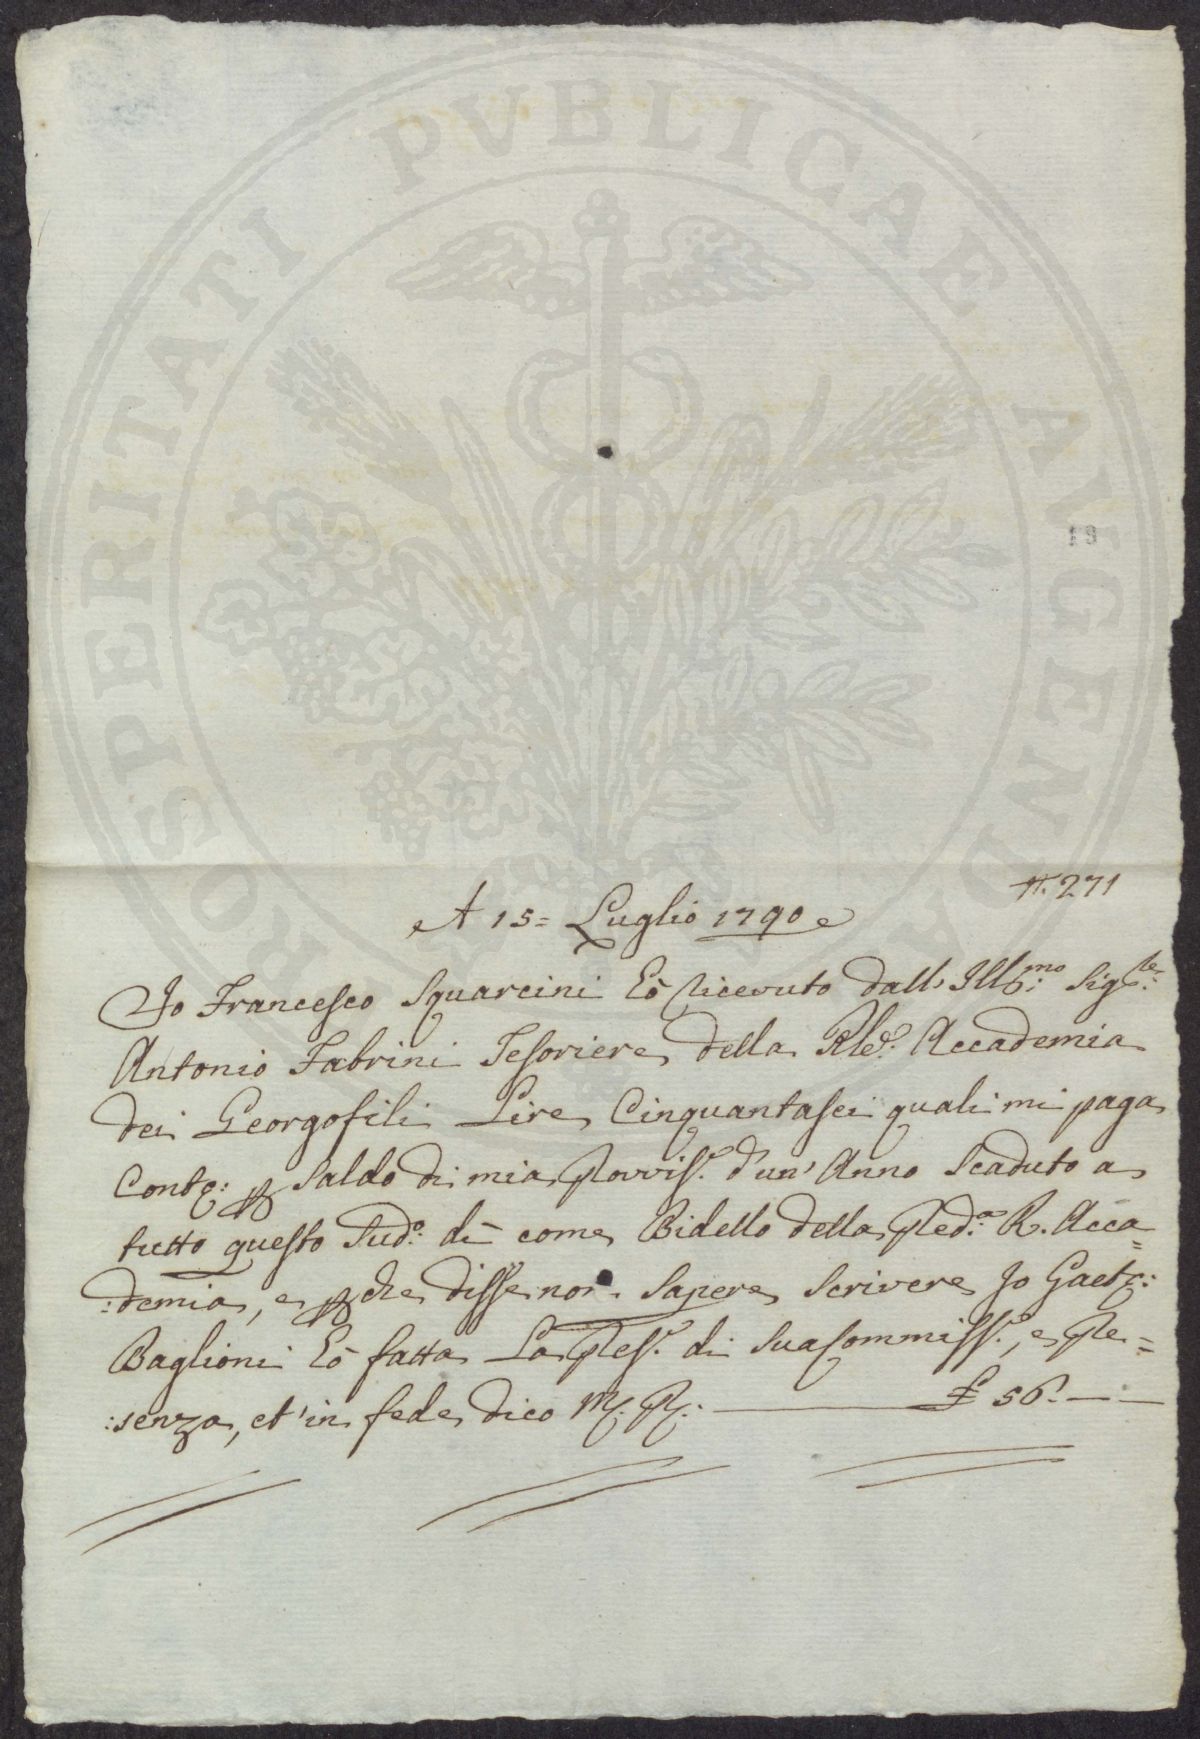 PROSPERITATI PVBLICAE AVGENDAE
19
n. 271
A 15 = Luglio 1790
Io Francesco Squarcini hò ricevuto dall' Ill:mo Sig:re
Antonio Fabrini Tesoriere della Rle: Accademia
dei Georgofili Lire Cinquantasei quali mi paga
Cont: p Saldo di mia Provvis:e d'un' Anno Scaduto a
tutto questo Sud:o dì come Bidello della Pred:a R. Acca=
:demia, e pche disse non Sapere Scrivere Io Gaet:
Baglioni hò fatta La Pres:e di Sua Commiss:e, e Pre=
:senza, et' in fede dico M: P: £ 56. —